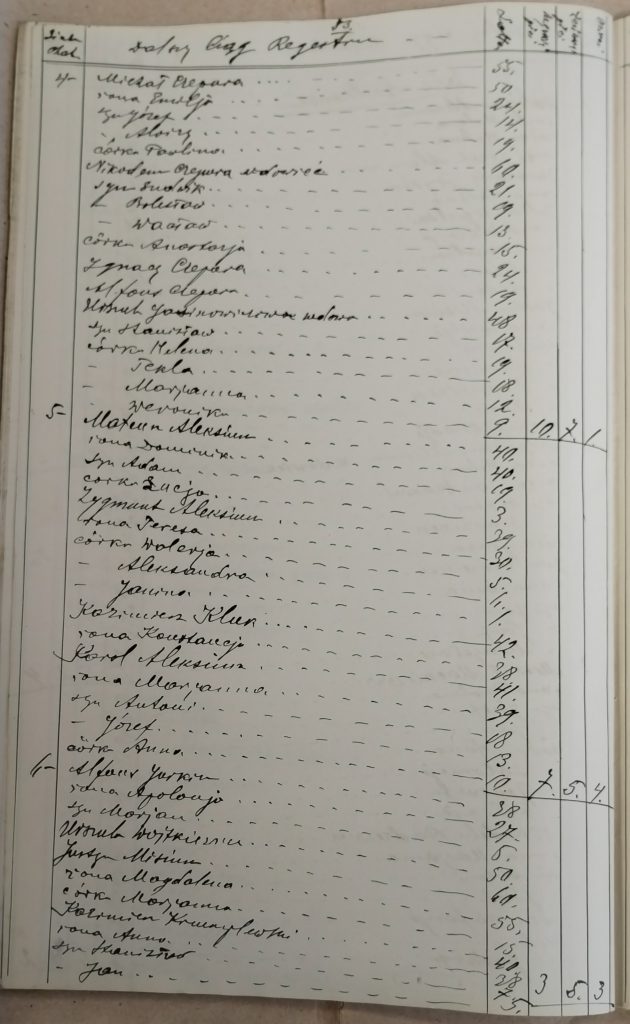 83
Dalszy Ciąg Regestru
Lata
4 - Michał Czepura 55.
żona Emilja 50
syn Józef 24.
" Aloizy 14.
córka Paulina 19.
Nikodem Czepura wdowiec 60.
syn Ludwik 21.
- Bolesław 19.
- Wacław 13
córka Anastazja 15.
Ignacy Czepura 24
Alfons Czepura 19.
Urszula wdowa 48
syn Stanisław 17.
córka Helena 19.
- Tekla 18
- Marjanna 12.
- Weronika 9. 10. 7. 1
5 - Mateusz Aleksiun 40.
żona Dominik 40.
syn Adam 19.
córka Łucja 3.
Zygmunt Aleksiun 39.
żona Teresa 30.
córka Walerja 5.
- Aleksandra
- Janina 1.
Kazimierz Kluk 42.
żona Konstancja 38
Karol Aleksiun 41.
żona Marjanna 39.
syn Antoni 18
- Józef 13.
córka Anna 10. 7. 5. 4.
6 - Alfons Jurkin 28
żona Apolonja 27.
syn Marjan 6.
Urszula Wojtkiewicz 50.
Justyn Misiun 60.
żona Magdalena 55.
córka Marjanna 15.
Kazimierz 40.
żona Anna 28
syn Stanisław 7
- Jan 5. 3 5. 3